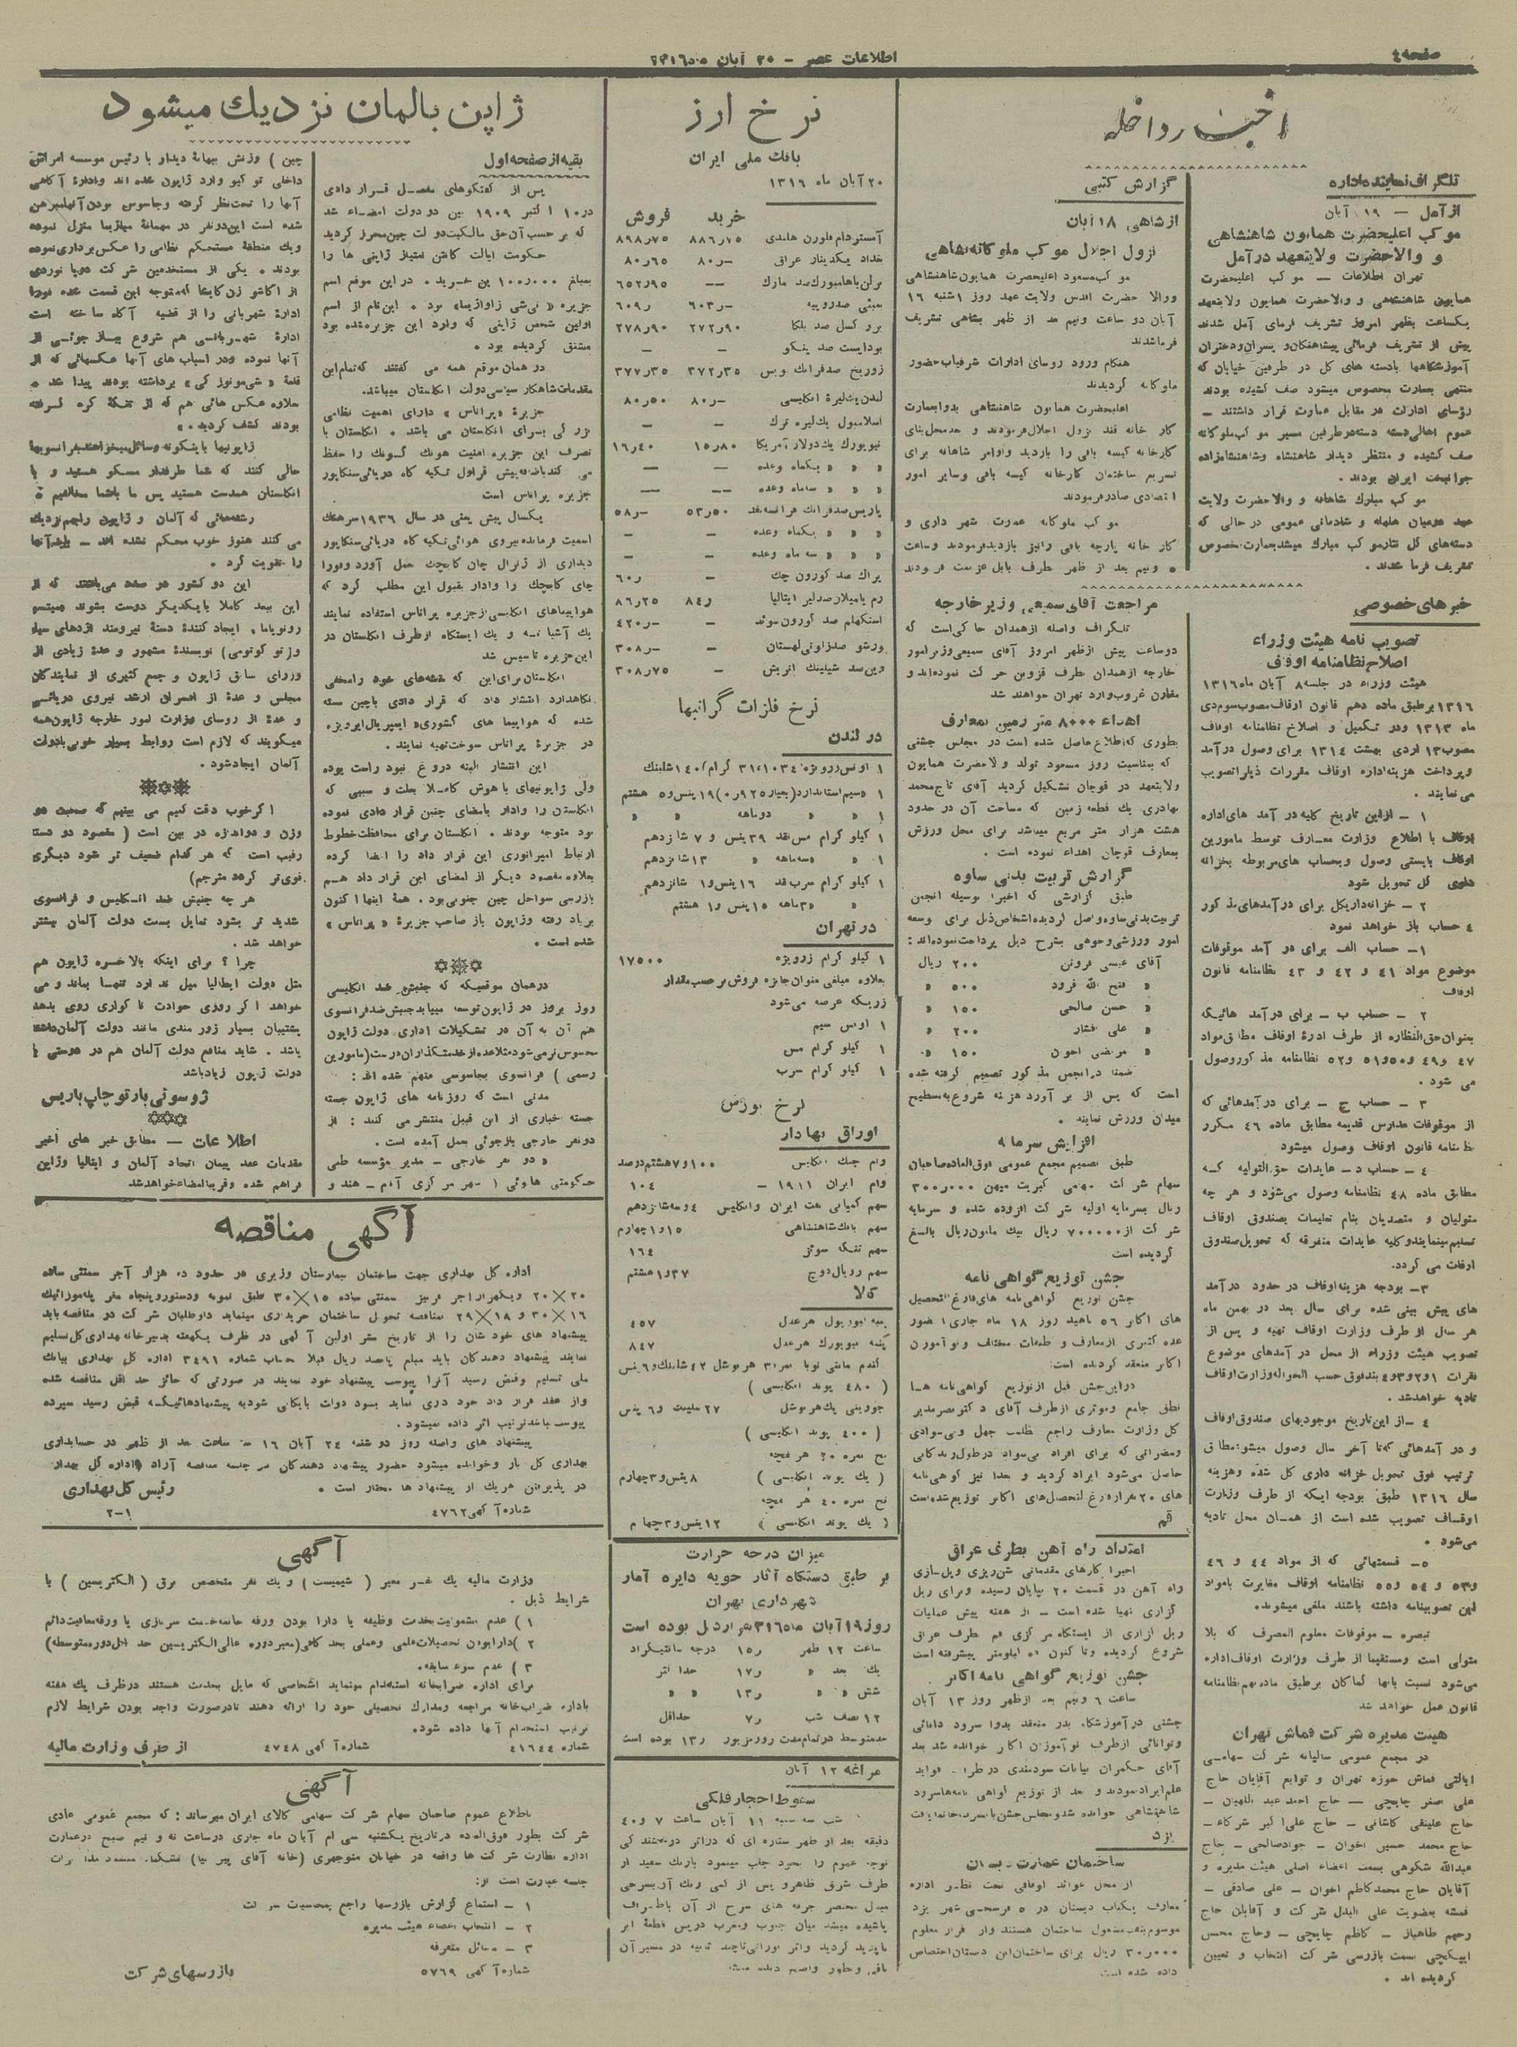 صفحه ٤
اطلاعات عصر – ۲۰ آبان ماه ۱۳۱٦
اخبار داخله
تلگراف نماینده اداره
از آمل – ۱۹ آبان
موکب اعلیحضرت همایون شاهنشاهی
و والاحضرت ولایتعهد در آمل
تهران اطلاعات – موکب اعلیحضرت
همایون شاهنشاهی و والاحضرت همایون ولایتعهد
یکساعت بظهر امروز تشریف فرمای آمل شدند
پیش از تشریف فرمائی پیشاهنگان و پسران و دختران
آموزشگاهها بادسته های گل در طرفین خیابان که
منتهی بعمارت مخصوص میشود صف کشیده بودند
رؤسای ادارات در مقابل عمارت قرار داشتند –
عموم اهالی دسته دسته در طرفین مسیر موکب ملوکانه
صف کشیده و منتظر دیدار شاهنشاه و شاهنشاهزاده
جوانبخت ایران بودند .
موکب مبارک شاهانه و والاحضرت ولایت
عهد درمیان هلهله و شادمانی عمومی در حالی که
دسته‌های گل نثار موکب مبارک میشد بعمارت مخصوص
تشریف فرما شدند .
خبرهای خصوصی
تصویب نامه هیئت وزراء
اصلاح نظامنامه اوقاف
هیئت وزراء در جلسه ۸ آبان ماه ۱۳۱٦
۱۳۱٦ بر طبق ماده دهم قانون اوقاف مصوب سوم دی
ماه ۱۳۱۳ و در تکمیل و اصلاح نظامنامه اوقاف
مصوب ۱۳ اردی بهشت ۱۳۱٤ برای وصول درآمد
و پرداخت هزینه اداره اوقاف مقررات ذیل را تصویب
می نمایند .
۱ – از این تاریخ کلیه در آمد های اداره
اوقاف با اطلاع وزارت معارف توسط مامورین
اوقاف بایستی وصول و بحساب های مربوطه بخزانه
داری کل تحویل شود
۲ – خزانه داری کل برای درآمدهای مذکور
٤ حساب باز خواهد نمود
۱– حساب الف برای در آمد موقوفات
موضوع مواد ٤۱ و ٤۲ و ٤۳ نظامنامه قانون
اوقاف
۲ – حساب ب – برای درآمد هائیکه
بعنوان حق النظاره از طرف ادارهٔ اوقاف مطابق مواد
٤۷ و ٤۹ و ٥۰ و ٥۱ و ٥۲ نظامنامه مذکور وصول
می شود .
۳ – حساب ج – برای درآمدهائی که
از موقوفات مدارس قدیمه مطابق ماده ٤٦ مکرر
نظامنامه قانون اوقاف وصول میشود
٤ – حساب د – عایدات حق التولیه که
مطابق ماده ٤۸ نظامنامه وصول می‌شود و هر چه
متولیان و متصدیان بنام تعلیمات بصندوق اوقاف
تسلیم مینمایند و کلیه عایدات متفرقه که تحویل صندوق
اوقاف می گردد.
۳– بودجه هزینه اوقاف در حدود درآمد
های پیش بینی شده برای سال بعد در بهمن ماه
هر سال از طرف وزارت اوقاف تهیه و پس از
تصویب هیئت وزراء از محل در آمدهای موضوع
فقرات ۱ و ۲ و ۳ و ٤ بند فوق حسب الحواله وزارت اوقاف
تادیه خواهد شد.
٤ – از این تاریخ موجودیهای صندوق اوقاف
و در آمدهائی که تا آخر سال وصول میشود مطابق
ترتیب فوق تحویل خزانه داری کل شده و هزینه
سال ۱۳۱٦ طبق بودجه ایکه از طرف وزارت
اوقاف تصویب شده است از همان محل تادیه
می‌شود .
٥– قسمتهائی که از مواد ٤٤ و ٤٦
و ٥۳ و ٥٤ و ٥٥ نظامنامه اوقاف مغایرت بامواد
این تصویبنامه داشته باشند ملغی میشوند.
تبصره – موقوفات معلوم المصرف که بلا
متولی است و مستقیما از طرف وزارت اوقاف اداره
می‌شود نسبت بآنها کماکان بر طبق ماده نهم نظامنامه
قانون عمل خواهد شد
هیئت مدیره شرکت قماش تهران
در مجمع عمومی سالیانه شرکت سهامی
ایالتی قماش حوزه تهران و توابع آقایان حاج
علی اصغر چایچی – حاج احمد عبداللهیان –
حاج علینقی کاشانی – حاج علی اکبر شرکاء –
حاج محمد حسین اخوان – جواد صالحی – حاج
عبدالله شکوهی بسمت اعضاء اصلی هیئت مدیره و
آقایان حاج محمد کاظم اخوان – علی صادقی –
بعضویت علی البدل شرکت و آقایان حاج
رحیم طاهباز – کاظم چایچی – و حاج محسن
ایپکچی بسمت بازرسی شرکت انتخاب و تعیین
گردیده اند .
گزارش کتبی
از شاهی ۱۸ آبان
نزول اجلال موکب ملوکانه بشاهی
موکب مسعود اعلیحضرت همایون شاهنشاهی
و والا حضرت اقدس ولایت عهد روز ۱شنبه ۱٦
آبان دو ساعت و نیم بعد از ظهر بشاهی تشریف
فرما شدند
هنگام ورود روسای ادارات شرفیاب حضور
ملوکانه گردیدند
اعلیحضرت همایون شاهنشاهی بدوا بعمارت
کارخانه قند نزول اجلال فرمودند و بعد محل بنای
کارخانه گیسه بافی را بازدید و اوامر شاهانه برای
تسریع ساختمان کارخانه گیسه بافی و سایر امور
اقتصادی صادر فرمودند
موکب ملوکانه عمارت شهرداری و
کارخانه پارچه بافی را نیز بازدید فرمودند و ساعت
٥ و نیم بعد از ظهر طرف بابل عزیمت فرمودند
مراجعت آقای سمیعی وزیر خارجه
تلگراف واصله از همدان حاکی است که
دو ساعت پیش از ظهر امروز آقای سمیعی وزیر امور
خارجه از همدان طرف قزوین حرکت نموده اند و
مقارن غروب وارد تهران خواهند شد
اهداء ۸۰۰۰ متر زمین بمعارف
بطوری که اطلاع حاصل شده است در مجلس جشنی
که بمناسبت روز مسعود تولد والاحضرت همایون
ولایتعهد در قوچان تشکیل گردید آقای تاج محمد
بهادری یک قطعه زمین که مساحت آن در حدود
هشت هزار متر مربع میباشد برای محل ورزش
بمعارف قوچان اهداء نموده است .
گزارش تربیت بدنی ساوه
طبق گزارشی که اخیرا بوسیله انجمن
تربیت بدنی ساوه واصل گردیده اشخاص ذیل برای توسعه
امور ورزشی وجوهی بشرح ذیل پرداخت نموده‌اند :
آقای عیسی فروتن ۲۰۰ ریال
« فتح الله فرود ٥۰۰ «
« حسن صالحی ۱٥۰ «
« علی افشار ۲۰۰ «
« مرتضی اخوان ۱٥۰ «
ضمنا در انجمن مذکور تصمیم گرفته شده
است که پس از بر آورد هزینه شروع به تسطیح
میدان ورزش نمایند .
افزایش سرمایه
طبق تصمیم مجمع عمومی فوق العاده صاحبان
سهام شرکت سهامی کبریت میهن ۳۰۰ر۰۰۰
ریال بسرمایه اولیه شرکت افزوده شده و سرمایه
شرکت از ۷۰۰۰۰۰ ریال بیک ملیون ریال بالغ
گردیده است
جشن توزیع گواهی نامه
جشن توزیع گواهی نامه های فارغ التحصیل
های اکابر ٥٦ ناهید روز ۱۸ ماه جاری با حضور
عده کثیری از معارف و طبقات مختلف و نوآموزان
اکابر منعقد گردیده است:
در این جشن قبل از توزیع گواهی نامه ها
نطق جامع و موثری از طرف آقای دکتر نصر مدیر
کل وزارت معارف راجع بجهل و بی‌سوادی
و مضراتی که برای افراد بی‌سواد در طول زندگانی
حاصل می‌شود ایراد گردید و بعدا نیز گواهی نامه
های ۲۰ نفر از فارغ التحصیل های اکابر توزیع شده است
قم
امتداد راه آهن بطرف عراق
اخیرا کارهای مقدماتی شن‌ریزی و پل‌سازی
راه آهن در قسمت ۲۰ بپایان رسیده و برای ریل
گزاری تهیا شده است – از هفته پیش عملیات
ریل گزاری از ایستگاه مرکزی قم بطرف عراق
شروع گردیده و تا کنون ده کیلومتر پیشرفته است
جشن توزیع گواهی نامه اکابر
ساعت ٦ و نیم بعد از ظهر روز ۱۳ آبان
جشنی در آموزشگاه بدر منعقد بدوا سرود دانائی
و توانائی از طرف نوآموزان اکابر خوانده شد بعد
آقای حکمران بیانات سودمندی در اطراف فواید
علم ایراد نمودند و بعد از توزیع گواهی نامه‌ها سرود
شاهنشاهی خوانده شد و مجلس جشن با مسرت خاتمه یافت
یزد
ساختمان عمارت دبستان
از محل عوائد اوقافی تحت نظر اداره
معارف یکباب دبستان در ٥ فرسخی شهر یزد
مشغول ساختمان هستند و از قرار معلوم
۳۰ر۰۰۰ ریال برای ساختمان این دبستان اختصاص
داده شده است
نرخ ارز
بانک ملی ایران
۲۰ آبان ماه ۱۳۱٦
خرید فروش
آمستردام فلورن هلندی ۸۸٦ر۷٥ ۸۹۸ر۷٥
بغداد یکدینار عراقی ۸۰ر– ۸۰ر٦٥
برلن یا هامبورک صد مارک –– ٦٥۲ر۹٥
بمبئی صد روپیه ٦۰۳ر– ٦۰۹ر–
بروکسل صد بلکا ۲۷۲ر۹۰ ۲۷۸ر۹۰
بوداپست صد پنکو – –
زوریخ صد فرانک سویس ۳۷۲ر۳٥ ۳۷۷ر۳٥
لندن یک لیرهٔ انگلیسی ۸۰ر– ۸۰ر٥۰
اسلامبول یک لیره ترک – –
نیویورک یک دولار آمریکا ۱٥ر۸۰ ۱٦ر٤۰
« « « یکماه وعده –– ––
« « « سه ماه وعده –– ––
پاریس صد فرانک فرانسه نقد ٥۳ر٥۰ ٥۸ر–
« « « یکماه وعده – –
« « « سه ماه وعده – –
پراک صد کورون چک –
رم یا میلان صد لیر ایتالیا ۸٤ر ۸٦ر۲٥
استکهلم صد کورون سوئد – ٤۲۰ر–
ورشو صد زلوتی لهستان – ۳۰۸ر–
وین صد شیلینک اتریش – ۳۰۸ر۷٥
نرخ فلزات گرانبها
در لندن
۱ اونس زر ویژه (۳۱٬۱۰۳٤ گرام) ۱٤۰ شلینک
۱ « سیم استاندارد (بعیار ۹۲٥ر۰) ۱۹ پنس و ٥ هشتم
۱ « « دو ماهه « «
۱ کیلو گرام مس نقد ۳۹ پنس و ۷ شانزدهم
۱ « « سه ماهه « ۱۳ شانزدهم
۱ کیلو گرام سرب نقد ۱٦ پنس و ۱ شانزدهم
« « ۳ ماهه ۱٥ پنس و ۱ هشتم
در تهران
۱ کیلو گرام زر ویژه ۱۷٥۰۰
بعلاوه مبلغی بعنوان جایزه فروش بر حسب مقدار
زریکه عرضه می‌شود
۱ اونس سیم
۱ کیلو گرام مس
۱ کیلو گرام سرب
نرخ بورس
اوراق بهادار
وام جنک انگلیس ۱۰۰ و ۷ هشتم درصد
وام ایران ۱۹۱۱ – ۱۰٤
سهم کمپانی نفت ایران و انگلیس ٤ و سه شانزدهم
سهم بانک شاهنشاهی ۱٥ و ۱ چهارم
سهم تنکه سوئز ۱٦٤
سهم رویال دوچ ۳۷ و ۱ هشتم
کالا
پنبه لیورپول هر عدل ٤٥۷
پنبه نیویورک هر عدل ۸٤۷
گندم مانی توبا نمره ۳ هر بوشل ٤۲ شلنک و ٦ پنس
( ٤۸۰ پوند انگلیسی )
جو وینی پک هر بوشل ۲۷ شلینک و ٦ پنس
( ٤۰۰ پوند انگلیسی )
نخ نمره ۲۰ هر بقچه
( یک پوند انگلیسی ) ۸ پنس و ۳ چهارم
نخ نمره ٤۰ هر بقچه
( یک پوند انگلیسی ) ۱۲ پنس و ۳ چهارم
میزان درجه حرارت
بر طبق دستگاه آثار جویه دایره آمار
شهرداری تهران
روز ۱۹ آبان ماه ۳۱٦ بقرار ذیل بوده است
ساعت ۱۲ ظهر ۱٥ر درجه سانتیگراد
یک بعد « ۱۷ر حداکثر
شش « « ۱۳ر « «
۱۲ نصف شب ۷ر حداقل
حد متوسط در تمام مدت روز مزبور ۱۳ر بوده است
مراغه ۱۲ آبان
سقوط احجار فلکی
شب سه شنبه ۱۱ آبان ساعت ۷ و ٤۰
دقیقه بعد از ظهر ستاره ای که در اثر درخشندگی
توجه عموم را بخود جلب مینمود بارنک سفید از
طرف شرق ظاهر و پس از کمی رنک آن بسرخی
مبدل و منحصر جرقه های سرخ از آن باطراف
پاشیده میشد میان جنوب و مغرب در پس قطعهٔ ابر
ناپدید گردید و اثر نورانی تا چند ثانیه در مسیر آن
باقی و بطور واضح دیده میشد
ژاپن بالمان نزدیک میشود
بقیه از صفحه اول
پس از گفتگوهای مفصل قرار دادی
در ۱۰ اکتبر ۱۹۰۹ بین دو دولت امضاء شد
که بر حسب آن حق مالکیت دولت چین محرز گردید
حکومت ایالت کانتن امتیاز ژاپنی ها را
بمبلغ ۱۰۰ر۰۰۰ ین خرید . در این موقع اسم
جزیره « نی‌شی زاوازیما » بود . این نام از اسم
اولین شخص ژاپنی که وارد این جزیره شده بود
مشتق گردیده بود .
در همان موقع همه می گفتند که تمام این
مقدمات شاهکار سیاسی دولت انگلستان میباشد.
جزیرهٔ « پراتاس » دارای اهمیت نظامی
بزرگی برای انگلستان می باشد . انگلستان با
تصرف این جزیره امنیت هونک کونک را حفظ
می کند بعلاوه پیش قراول تکیه گاه دریائی سنگاپور
جزیره پراتاس است
یکسال پیش یعنی در سال ۱۹۳٦ سرهنک
اسمیت فرمانده نیروی هوائی تکیه گاه دریائی سنگاپور
دیداری از ژنرال چان کایچک بعمل آورد و فورا
چای کایچک را وادار بقبول این مطلب کرد که
هواپیماهای انگلیسی از جزیره پراتاس استفاده نمایند
یک آشیانه و یک ایستگاه از طرف انگلستان در
این جزیره تاسیس شد
انگلستان برای این که نقشه‌های خود را مخفی
نگاهدارد انتشار داد که قرار دادی با چین بسته
شده که هواپیما های کشوری « ایمپریال ایرویز »
در جزیرهٔ پراتاس سوخت تهیه نمایند .
این انتشار البته دروغ نبود راست بوده
ولی ژاپونیهای با هوش کاملا بعلت و سببی که
انگلستان را وادار بامضای چنین قرار دادی نموده
بود متوجه بودند . انگلستان برای محافظت خطوط
ارتباط امپراتوری این قرار داد را امضا کرده
بعلاوه مقصود دیگر از امضای این قرار داد هم
بازرسی سواحل چین جنوبی بود . همهٔ اینها اکنون
برباد رفته و ژاپون باز صاحب جزیرهٔ « پراتاس »
شده است .
در همان موقعیکه که جنبش ضد انگلیسی
روز بروز در ژاپون توسعه مییابد جنبش ضد فرانسوی
هم آن به آن در تشکیلات اداری دولت ژاپون
محسوس تر می‌شود مثلا عده از خدمتگذاران درست (مامورین
رسمی ) فرانسوی بجاسوسی متهم شده اند :
مدتی است که روزنامه های ژاپون جسته
جسته خباری از این قبیل منتشر می کنند : از
دو نفر خارجی بازجوئی بعمل آمده است .
« دو نفر خارجی – مدیر مؤسسه طبی
حکومتی هانوئی ( شهر مرکزی آنام – هند و
چین ) و زنش ببهانهٔ دیدار با رئیس موسسه امراض
داخلی توکیو وارد ژاپون شده اند و ادارهٔ آگاهی
آنها را تحت نظر گرفته و جاسوس بودن آنها مبرهن
شده است این دو نفر در مهمانخانهٔ میازیما منزل نموده
و یک منطقهٔ مستحکم نظامی را عکس برداری نموده
بودند . یکی از مستخدمین شرکت دریا نوردی
از اکاشو زن کایشا که متوجه این قسمت شده فورا
ادارهٔ شهربانی را از قضیه آگاه ساخته است
ادارهٔ شهربانی هم شروع ببازجوئی از
آنها نموده و در اسباب های آنها عکسهائی که از
قلعهٔ « شی‌مونوز کی » برداشته بودند پیدا شد .
بعلاوه عکس هائی هم که از تنگهٔ کره گرفته
بودند کشف گردید . »
ژاپونیها باینگونه وسائل میخواهند فرانسویها
حالی کنند که شما طرفدار مسکو هستید و با
انگلستان همدست هستید پس ما باشما مخالفیم :
رشته‌هائی که آلمان و ژاپون را بهم نزدیک
می کنند هنوز خوب محکم نشده اند – باید آنها
را تقویت کرد .
این دو کشور در صدد می‌باشند که از
این ببعد کاملا با یکدیگر دوست بشوند میتسو
رونویاما، ایجاد کنندهٔ دستهٔ نیرومند اژدهای سیاه
و ( تو کوتومی ) نویسندهٔ مشهور و عدهٔ زیادی از
وزرای سابق ژاپون و جمع کثیری از نمایندگان
مجلس و عدهٔ از افسران ارشد نیروی دریائی
و عدهٔ از روسای وزارت امور خارجه ژاپون همه
میگویند که لازم است روابط بسیار خوبی بادولت
آلمان ایجاد شود .
اگر خوب دقت کنیم می بینیم که صحبت دو
وزن و دو اندازه در بین است ( مقصود دو دستهٔ
رقیب است که هر کدام ضعیف تر شود دیگری
قوی‌تر گردد مترجم)
هر چه جنبش ضد انگلیس و فرانسوی
شدید تر بشود تمایل بسمت دولت آلمان بیشتر
خواهد شد .
چرا ؟ برای اینکه بالاخره ژاپون هم
مثل دولت ایطالیا میل ندارد تنها بماند و می
خواهد اگر روزی حوادث ناگواری روی بدهد
پشتیبان بسیار زورمندی مانند دولت آلمان داشته
باشد . شاید منافع دولت آلمان هم در دوستی با
دولت ژاپون زیاد باشد
ژوسوئی بار تو چاپ پاریس
اطلاعات – مطابق خبر های اخیر
مقدمات عقد پیمان اتحاد آلمان و ایتالیا و ژاپن
فراهم شده و قریبا امضاء خواهد شد
آگهی مناقصه
اداره کل بهداری جهت ساختمان بیمارستان وزیری در حدود ده هزار آجر سمنتی ساده
۲۰×۲۰ و یکهزار آجر قرمز سمنتی ساده ۱٥×۳۰ طبق نمونه و دستور و پنجاه متر پله موزائیک
۱٦×۳۰ و ۱۸×۲۹ بمناقصه تحویل ساختمان خریداری مینماید داوطلبان شرکت در مناقصه باید
پیشنهاد های خودشان را از تاریخ نشر اولین آگهی در ظرف یکهفته بدبیرخانه بهداری کل تسلیم
نمایند پیشنهاد دهندگان باید مبلغ پانصد ریال قبلا بحساب شماره ۳٤۹۱ اداره کل بهداری ببانک
ملی تسلیم و قبض رسید آنرا پیوست پیشنهاد خود نمایند در صورتی که حائز حد اقل مناقصه شده
و از عقد قرار داد خود دری نماید بسود دولت بایگانی شود به پیشنهادهائیکه قبض رسید سپرده
پیوست نباشد ترتیب اثر داده نمیشود .
پیشنهاد های واصله روز دوشنبه ۲٤ آبان ۱٦ ساعت بعد از ظهر در حسابداری
بهداری کل باز و خوانده میشود حضور پیشنهاد دهندگان در جلسه مناقصه آزاد و اداره کل بهداری
در پذیرفتن هر یک از پیشنهاد ها مختار است .
رئیس کل بهداری
شماره آگهی ٤۷٦۲ ۲–۱
آگهی
وزارت مالیه یک نفر معبر ( شیمیست ) و یک نفر متخصص برق ( الکتریسین ) با
شرایط ذیل .
۱ ) عدم مشمولیت بخدمت وظیفه یا دارا بودن ورقه خاتمه خدمت سربازی یا ورقه معافیت دائم
۲ ) دارا بودن تحصیلات علمی و عملی بحد کافی (معبر دوره عالی الکتریسین حد اقل دوره متوسطه)
۳ ) عدم سوء سابقه.
برای اداره ضرابخانه استخدام مینماید اشخاصی که مایل بخدمت هستند در ظرف یک هفته
باداره ضرابخانه مراجعه و مدارک تحصیلی خود را ارائه دهند تا در صورت واجد بودن شرایط لازم
ترتیب استخدام آنها داده شود.
شماره ٤۱٦٤٤ شماره آگهی ٤۷٤۸ از طرف وزارت مالیه
آگهی
باطلاع عموم صاحبان سهام شرکت سهامی کالای ایران میرساند : که مجمع عمومی عادی
شرکت بطور فوق العاده در تاریخ یکشنبه سی ام آبان ماه جاری در ساعت نه و نیم صبح در عمارت
اداره نظارت شرکت ها واقعه در خیابان منوچهری (خانه آقای پیرنیا) تشکیل میشود
جلسه عبارت است از:
۱ – استماع گزارش بازرسها راجع بمحاسبات شرکت
۲ – انتخاب اعضاء هیئت مدیره
۳ – مسائل متفرقه
شماره آگهی ٥۷٦۹ بازرسهای شرکت